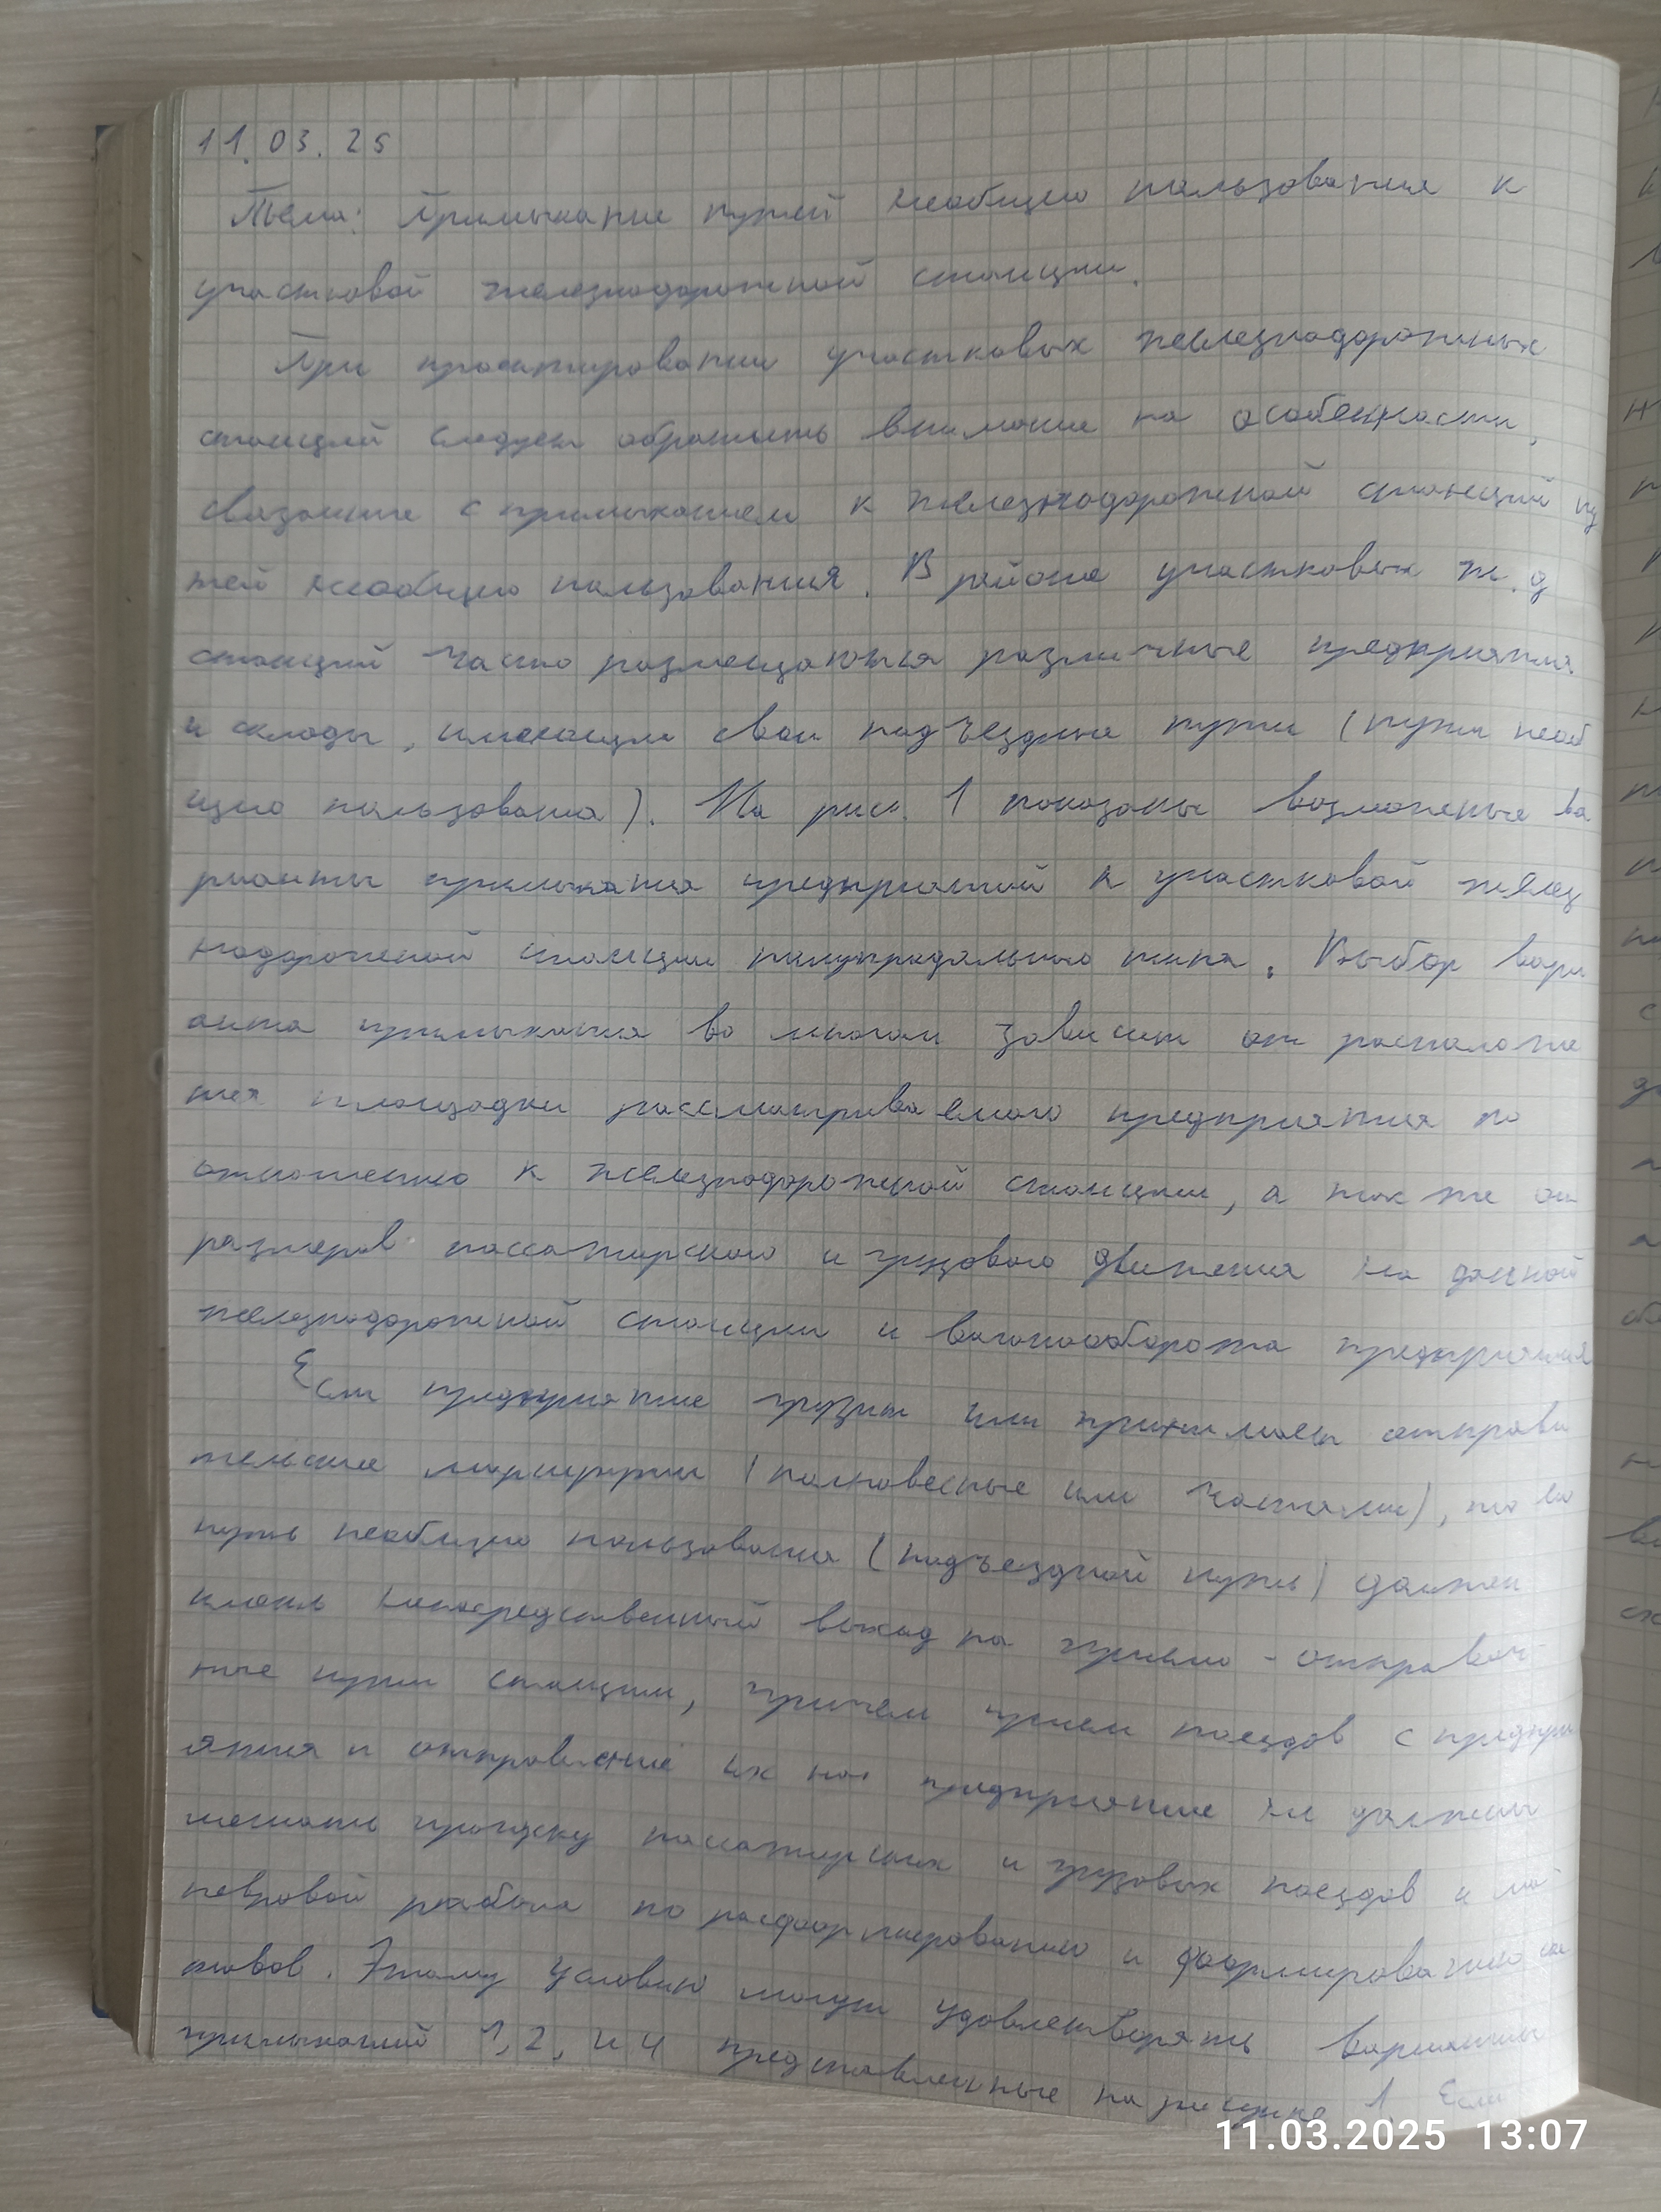 11.03.25
Тема: Примыкание путей необщего пользования к
участковой железнодорожной станции.
При проектировании участковых железнодорожных
станций следует обратить внимание на особенности,
связанные с примыканием к железнодорожной станций пу
тей необщего пользования. В районе участковых ж.д
станций часто размещаются различные предприятия
и склады, имеющие свои подъездные пути (пути необ
щего пользования). На рис. 1 показаны возможные ва
рианты примыкания предприятий к участковой желез
нодорожной станции полупродольного типа. Выбор вари
анта примыкания во многом зависит от расположе
ния площадки рассматриваемого предприятия по
отношению к железнодорожной станции, а так же от
размеров пассажирского и грузового движения на данной
железнодорожной станции и вагонооборота предприятия
Если предприятие грузит или принимает отправи
тельские маршруты (полновесные или частями), то его
путь необщего пользования (подъездной путь) должен
иметь непосредственный выход на приемо-отправоч
ные пути станции, причем прием поездов с предпри
ятия и отправление их на предприятие не должны
мешать пропуску пассажирских и грузовых поездов и ма
невровой работе по расформированию и формированию со
ставов. Этому условию могут удовлетворять варианты
примыканий 1, 2, и 4 представленные на рисунке 1. Если
11.03.2025 13:07